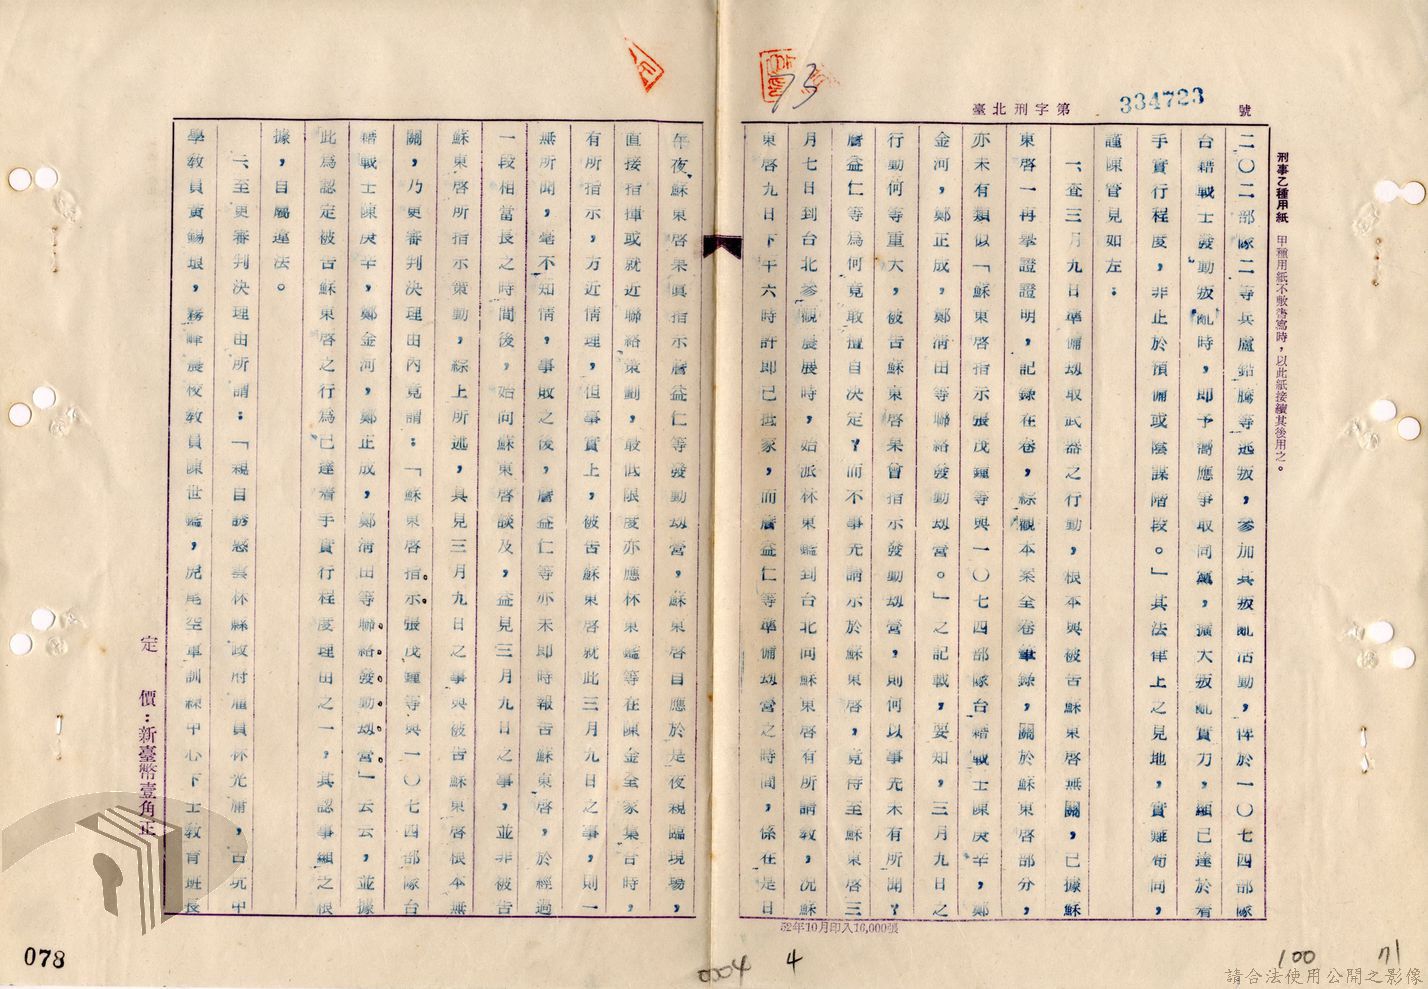 臺北刑字第 334723 號
刑事乙種用紙 甲種用紙不敷書寫時，以此紙接續其後用之。
73
二〇二二部隊二等兵盧鉛騰等逃叛，參加其叛亂活動，俾於一〇七四部隊
台籍戰士發動叛亂時，即予響應爭取同黨，擴大叛亂實力，組已達於着
手實行程度，非止於預備或陰謀階段。」其法律上之見地，實難苟同，
謹陳管見如左：
一、查三月九日準備刧取武器之行動，根本與被告蘇東啓無關，已據蘇
東啓一再舉證證明，記錄在卷，綜觀本案全卷筆錄，關於蘇東啓部分，
亦未有類似「蘇東啓指示張茂鐘等與一〇七四部隊台籍戰士陳庚辛，鄭
金河，鄭正成，鄭清田等聯絡發動刧營。」之記載，要知，三月九日之
行動何等重大，被告蘇東啓果曾指示發動刧營，則何以事先未有所聞？
詹益仁等為何竟敢擅自決定？而不事先請示於蘇東啓，竟待至蘇東啓三
月七日到台北參觀農展時，始派林東鑑到台北向蘇東啓有所請教，況蘇
東啓九日下午六時許即已抵家，而詹益仁等準備刧營之時間，係在是日
52年10月印入16,000張
午夜蘇東啓果真指示詹益仁等發動刧營，蘇東啓自應於是夜親臨現場，
直接指揮或就近聯絡策劃，最低限度亦應林東鑑等在陳金全家集合時，
有所指示，方近情理，但事實上，被告蘇東啓就此三月九日之事，則一
無所聞，毫不知情，事敗之後，詹益仁等亦未即時報告蘇東啓，於經過
一段相當長之時間後，始向蘇東啓談及，益見三月九日之事，並非被告
蘇東啓所指示策動，綜上所述，具見三月九日之事與被告蘇東啓根本無
關，乃更審判決理由內竟謂：「蘇東啓指示張茂鐘等與一〇七四部隊台
籍戰士陳庚辛，鄭金河，鄭正成，鄭清田等聯絡發動刧營」云云，並據
此為認定被告蘇東啓之行為已達着手實行程度理由之一，其認事組之根
據，自屬違法。
二、至更審判決理由所謂：「親自誘惑雲林縣政府雇員林光庸，古坑中
學教員黃錫琅，霧峰農校教員陳世鑑，虎尾空軍訓練中心下士教育班長
定 價：新臺幣壹角正
078
0004
4
100
71
請合法使用公開之影像